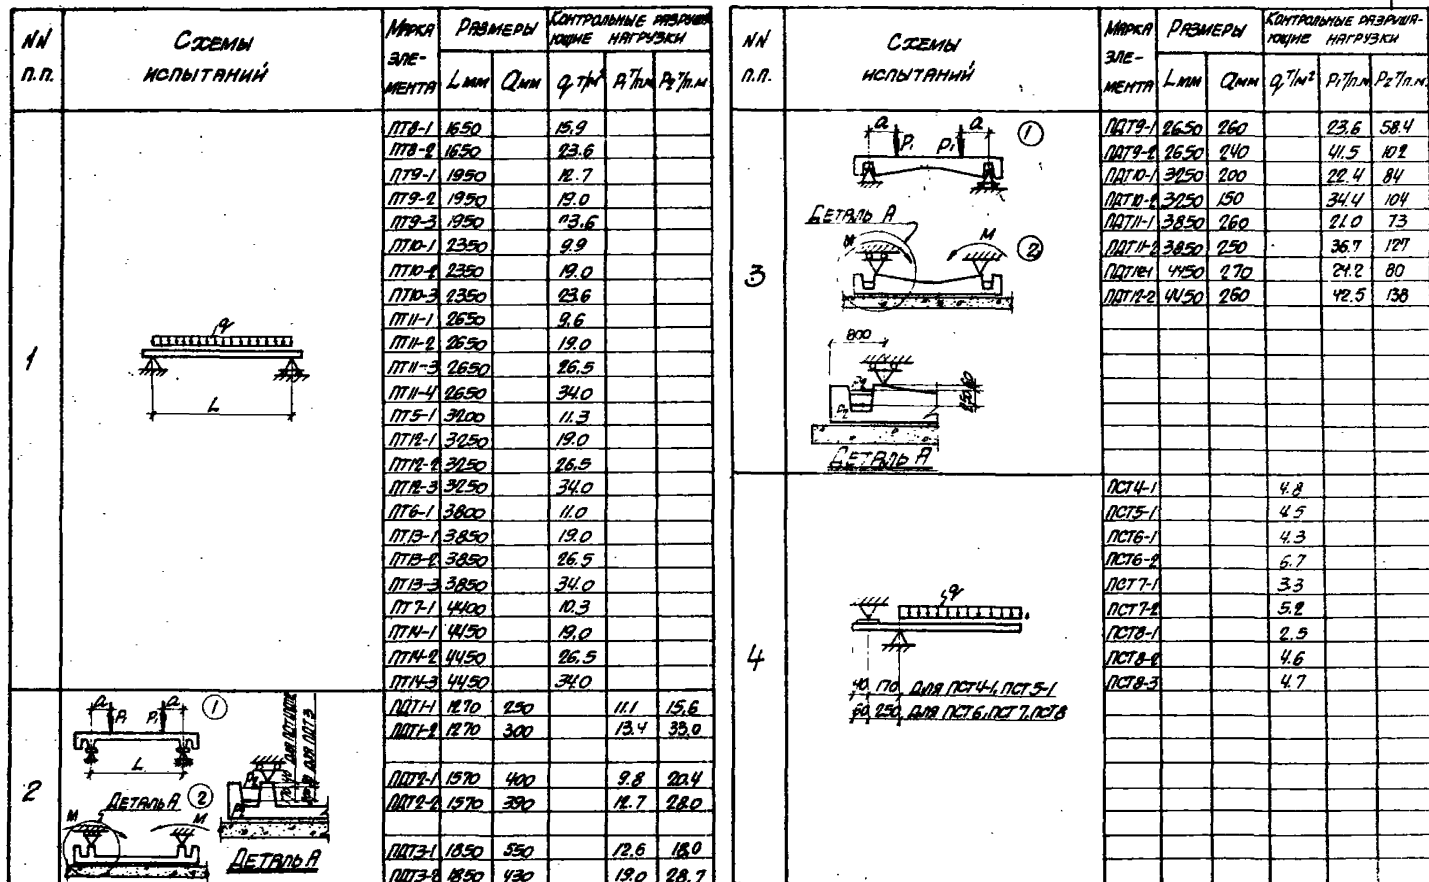 NN п.п. Схемы испытаний Марка элемента Размеры Контрольные разрушающие нагрузки
L мм Q мм q т/м² P₁ т/п.м P₂ т/п.м
1
q
L
ПТ8-1 1650 15.9
ПТ8-2 1650 23.6
ПТ9-1 1950 12.7
ПТ9-2 1950 19.0
ПТ9-3 1950 23.6
ПТ10-1 2350 9.9
ПТ10-2 2350 19.0
ПТ10-3 2350 23.6
ПТ11-1 2650 9.6
ПТ11-2 2650 19.0
ПТ11-3 2650 26.5
ПТ11-4 2650 34.0
ПТ5-1 3200 11.3
ПТ12-1 3250 19.0
ПТ12-2 3250 26.5
ПТ12-3 3250 34.0
ПТ6-1 3800 11.0
ПТ13-1 3850 19.0
ПТ13-2 3850 26.5
ПТ13-3 3850 34.0
ПТ7-1 4400 10.3
ПТ14-1 4450 19.0
ПТ14-2 4450 26.5
ПТ14-3 4450 34.0
2
a a 1
P₁ P₁
L
Деталь А 2
М М
P₂
P₂
для ПДТ3
Деталь А
ПДТ1-1 1270 250 11.1 15.6
ПДТ1-2 1270 300 13.4 33.0
ПДТ2-1 1570 400 9.8 20.4
ПДТ2-2 1570 390 12.7 28.0
ПДТ3-1 1850 550 12.6 18.0
ПДТ3-2 1850 430 19.0 28.7
NN п.п. Схемы испытаний Марка элемента Размеры Контрольные разрушающие нагрузки
L мм Q мм q т/м² P₁ т/п.м P₂ т/п.м
3
a a 1
P₁ P₁
Деталь А
М М 2
800
P₂
P₂
250 60
Деталь А
ПДТ9-1 2650 260 23.6 58.4
ПДТ9-2 2650 240 41.5 102
ПДТ10-1 3250 200 22.4 84
ПДТ10-2 3250 150 34.4 104
ПДТ11-1 3850 260 21.0 73
ПДТ11-2 3850 250 36.7 127
ПДТ12-1 4450 270 24.2 80
ПДТ12-2 4450 260 42.5 138
4
q
40 170 для ПСТ4-1, ПСТ5-1
60 250 для ПСТ6, ПСТ7, ПСТ8
ПСТ4-1 4.8
ПСТ5-1 4.5
ПСТ6-1 4.3
ПСТ6-2 6.7
ПСТ7-1 3.3
ПСТ7-2 5.2
ПСТ8-1 2.5
ПСТ8-2 4.6
ПСТ8-3 4.7